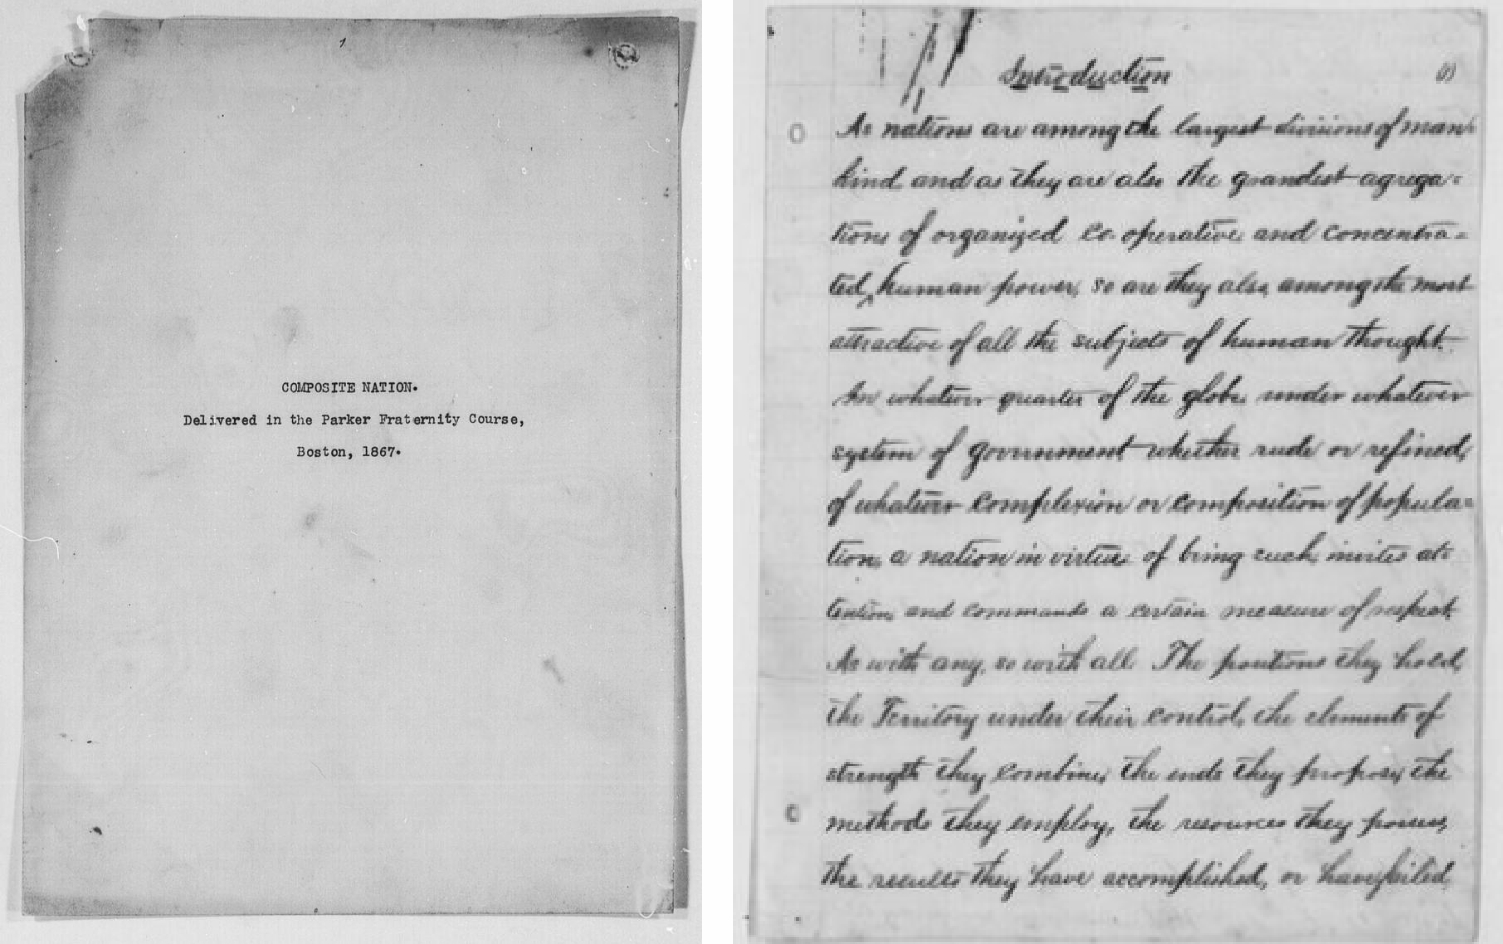 1
COMPOSITE NATION.
Delivered in the Parker Fraternity Course,
Boston, 1867.
Introduction
As nations are among the largest divisions of man-
kind and as they are also the grandest agrega=
tions of organized co-operative and concentra=
ted, human power, so are they also, among the most
attractive of all the subjects of human thought.
In whatever quarter of the globe under whatever
system of government whether rude or refined,
of whatever complexion or composition of popula=
tion, a nation in virtue of being such, invites at-
tention and commands a certain measure of respect.
As with any, so with all. The positions they hold,
the Territory under their control, the elements of
strength they combine, the ends they propose, the
methods they employ, the resources they possess,
the results they have accomplished, or have failed